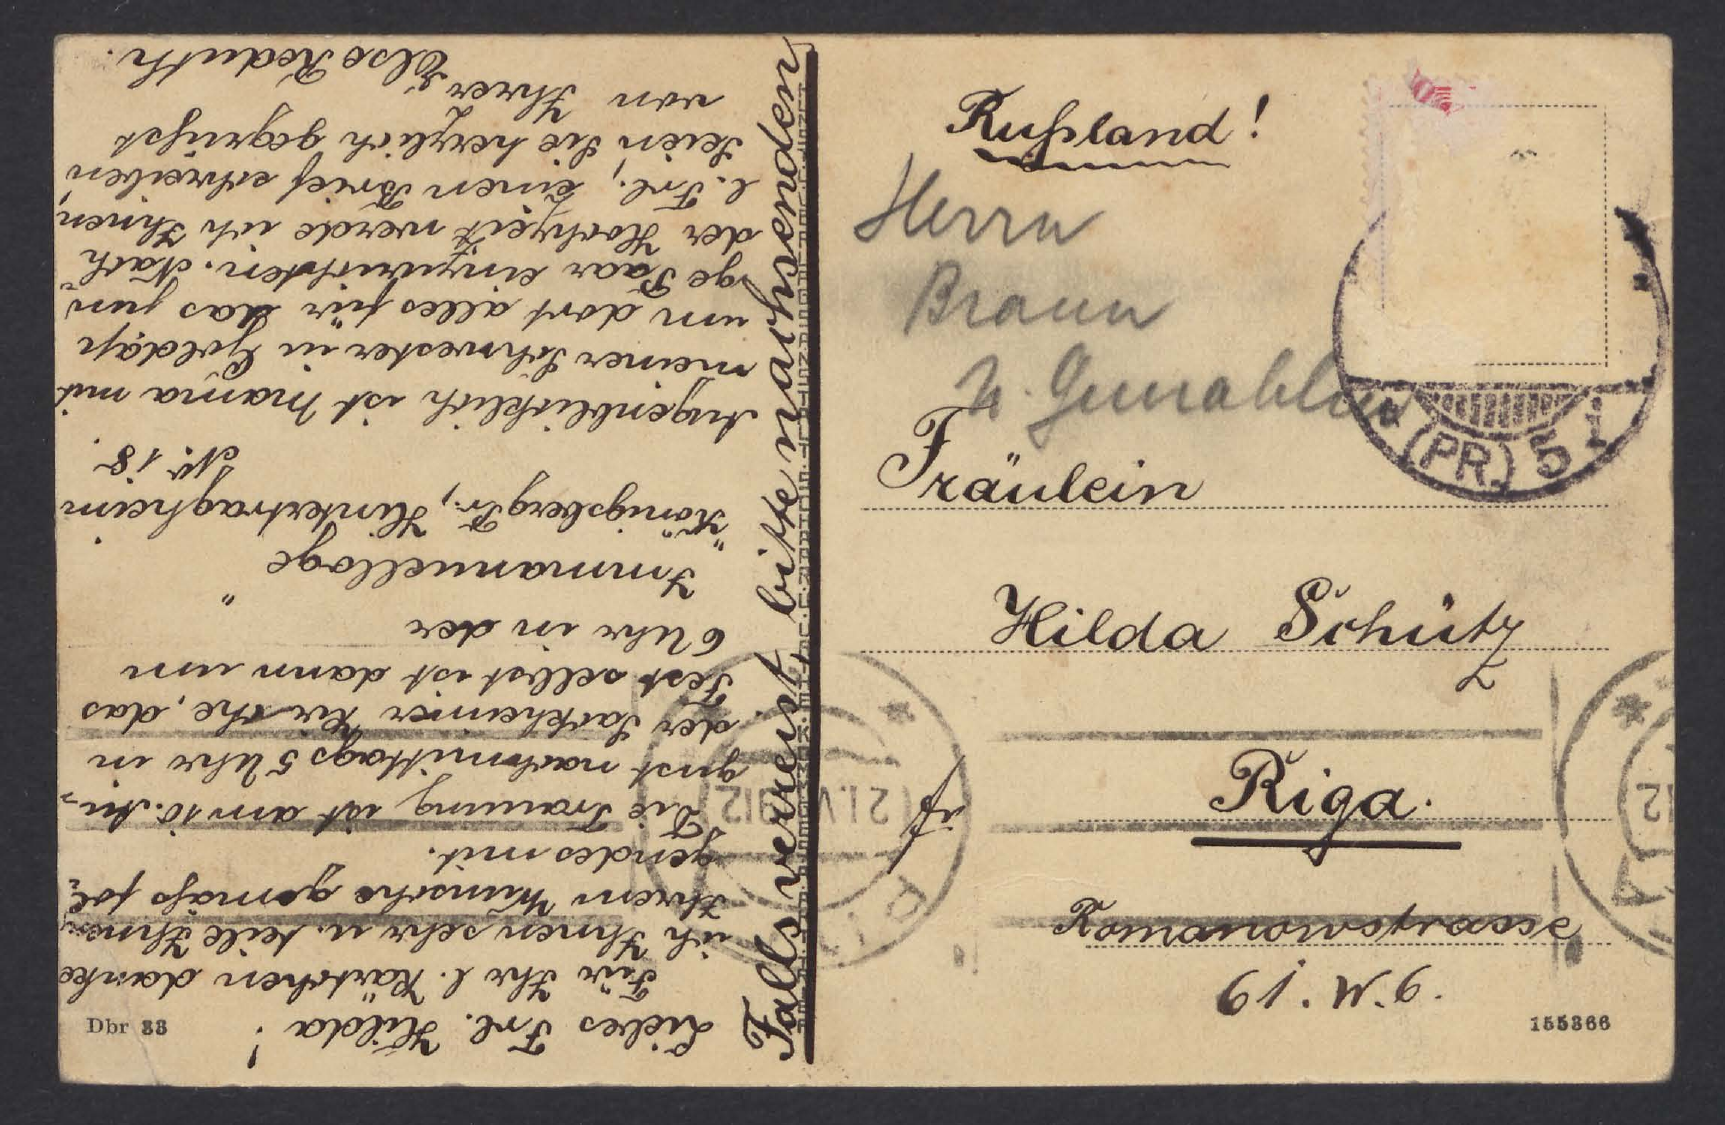 Liebes Frl. Hilda!
Für Ihr l. Kärtchen danke
ich Ihnen sehr u. teile Ihnen,
Ihrem Wunsche gemäß fol-
gendes mit.
Die Trauung ist am 10. Au-
gust nachmittags 5 Uhr in
der Sackheimer Kirche, das
Fest selbst ist dann um
6 Uhr in der
"Immanuelloge"
Königsberg Pr., Hintertragheim
No. 18.
Augenblicklich ist Mama mit
meiner Schwester in Goldap
um dort alles für das jun-
ge Paar einzurichten. Nach
der Hochzeit werde ich Ihnen,
l. Frl., einen Brief schreiben
Seien Sie herzlich gegrüßt
von Ihrer
Else Reduth.
Falls verreist, bitte nachsenden
Rußland!
Herrn
Braun
u. Gemahlin
(PR.) 5 i
Fräulein
Hilda Schütz
Riga.
Romanowstrasse
61. W. 6.
21.V 912
12
Dbr 33
155366